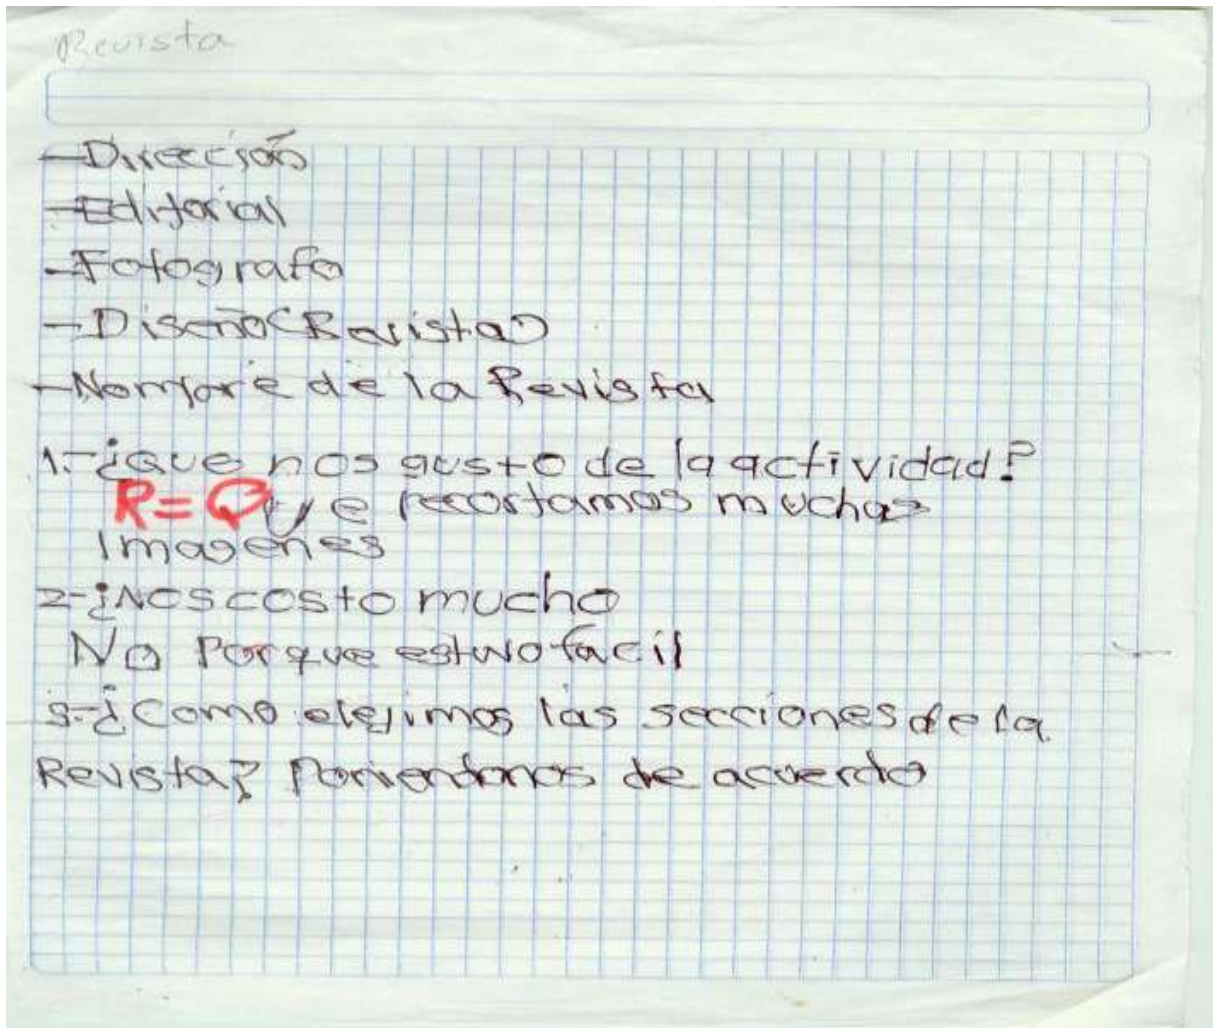 Revista
-Dirección
-Editorial
-Fotografo
-Diseño(Revista)
-Nombre de la Revista
1.-¿Que nos gusto de la actividad?
R= Que recortamos muchas
Imagenes
2-¿Nos costo mucho
No Porque estuvo facil
3-¿Como elejimos las secciones de la
Revista? Poniendonos de acuerdo